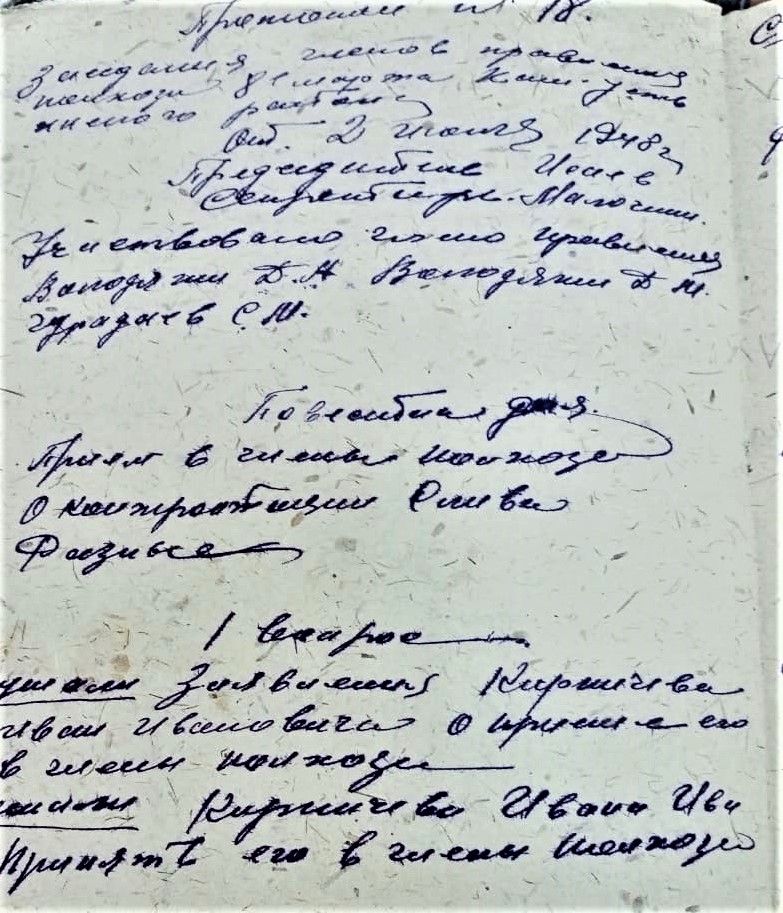 Протокол № 18.
Заседания членов правления
колхоза 8 е марта Кам. Усть
инского района
От. 2 июля 1948 г
Председатель Исаев
Секретарь. Малочкин.
Участвовало члено правления
Володяжин Д. Володяжин Д М.
С М.
Повестка дня.
Прием в члены колхоза
О контрактации
Разные
1 вопрос
ушали Заявления Кирпичева
Иван Ивановича о приеме его
в члены колхоза
Кирпичева Ивана Ива
Принять его в члены колхоза